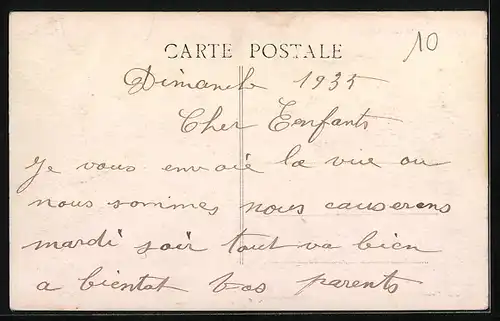 CARTE POSTALE
10
Dimanch 1935
Cher Eenfants
Je vous envoié la vue ou
nous sommes nous causerons
mardi soir tout va bien
a bientot vos parents